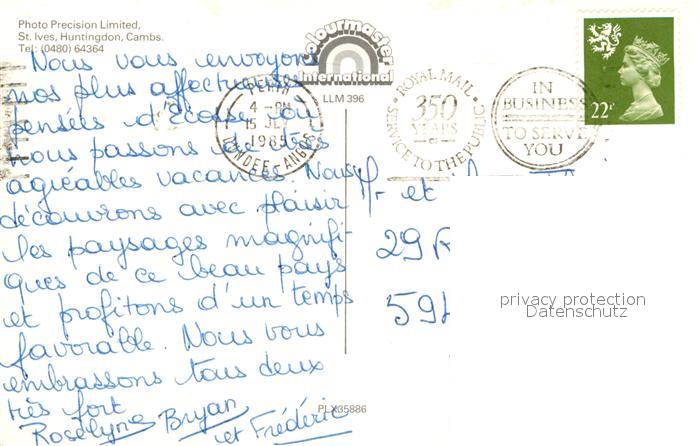 Photo Precision Limited,
St. Ives, Huntingdon, Cambs.
Tel: (0480) 64364
colourmaster
international
LLM 396
Nous vous envoyons
nos plus affectueuses
pensées d'Ecosse où
nous passons de très
agréables vacances. Nous
découvrons avec plaisir
les paysages magnifi-
ques de ce beau pays
et profitons d'un temps
favorable. Nous vous
embrassons tous deux
très fort
Roselyne Bryan
et Frédéric
PERTH
4 - PM
15 JLY
1985
DUNDEE ANGUS
ROYAL MAIL
350
YEARS
SERVICE TO THE PUBLIC
IN
BUSINESS
TO SERVE
YOU
22P
M. et
29
59
privacy protection
Datenschutz
PLX35886